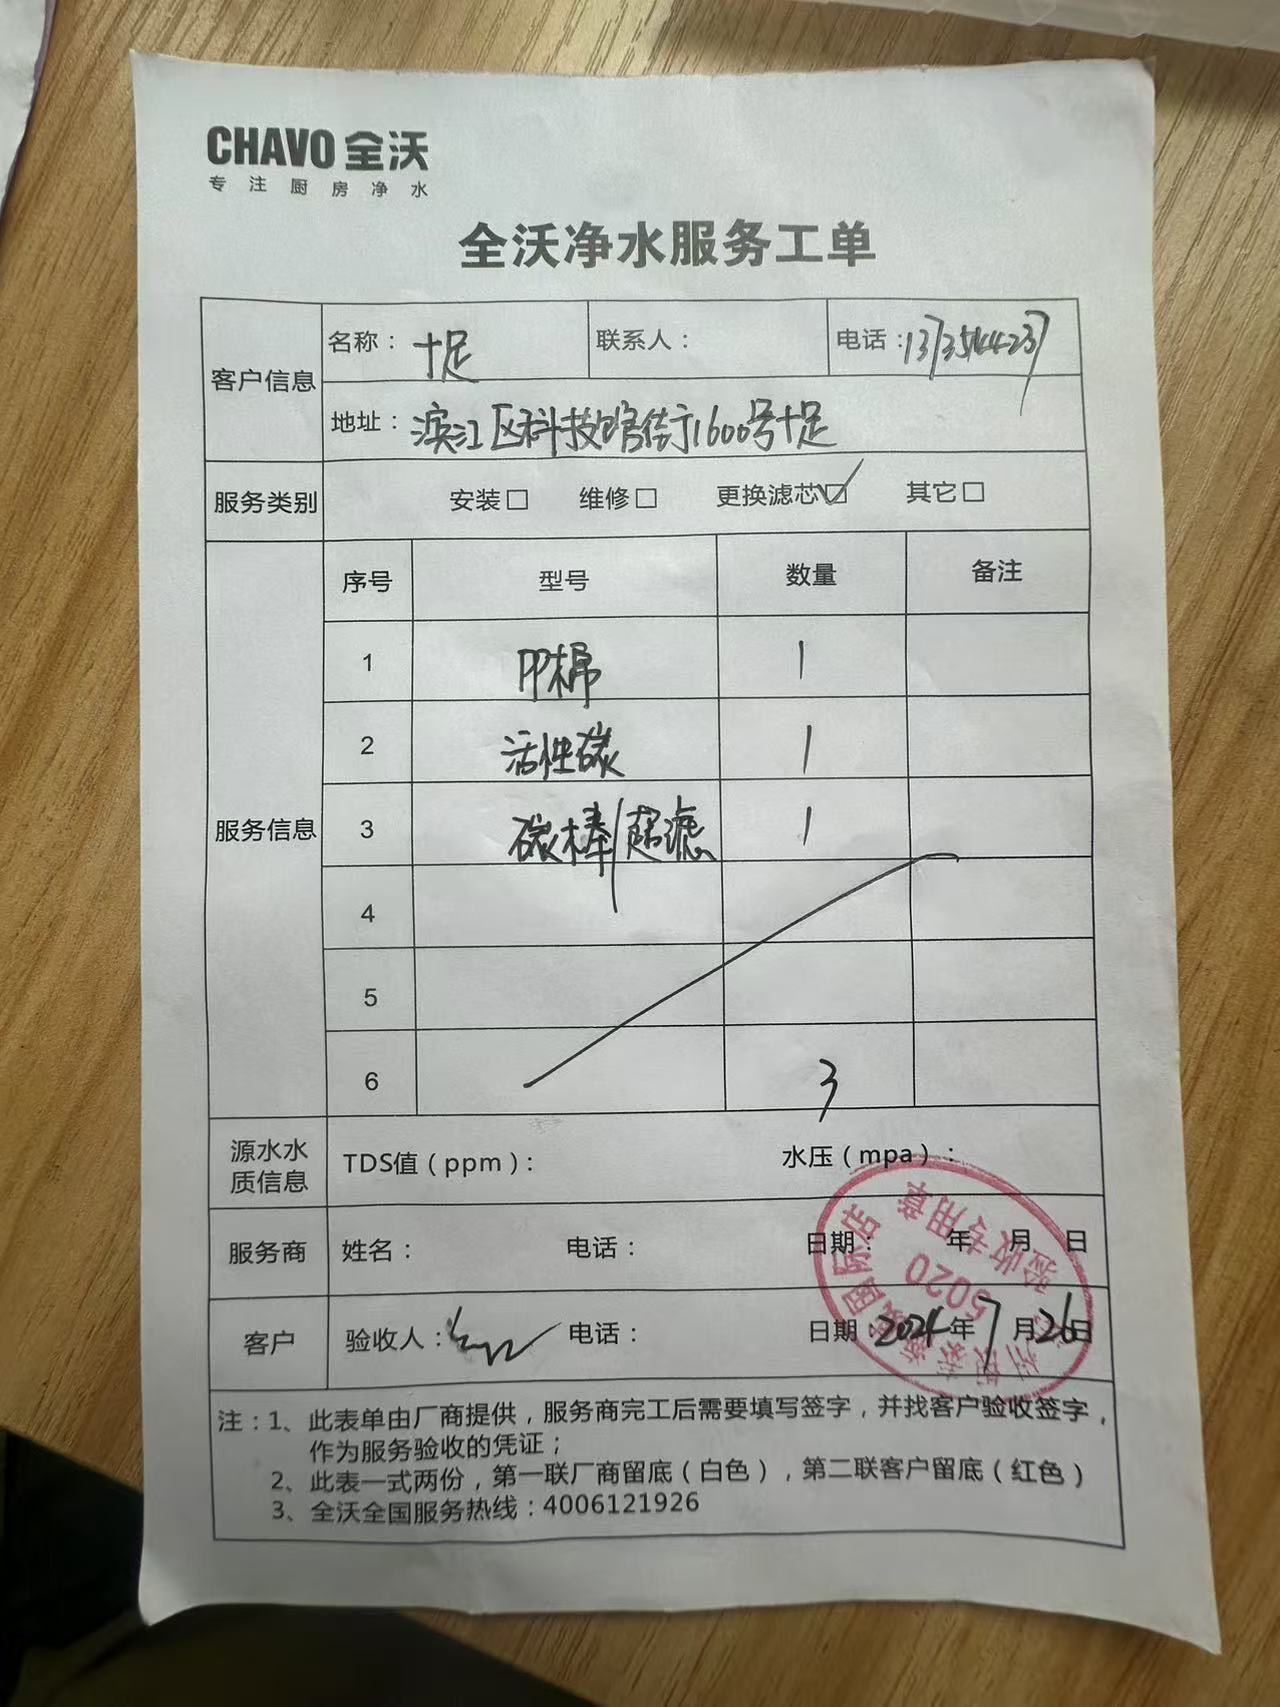 CHAVO 全沃
专注厨房净水
全沃净水服务工单
客户信息 名称：十足 联系人： 电话：
地址：滨江区科技馆街1600号十足
服务类别 安装□ 维修□ 更换滤芯☑ 其它□
服务信息 序号 型号 数量 备注
1 PP棉 1
2 活性碳 1
3 碳棒/超滤 1
4
5
6 3
源水水质信息 TDS值（ppm）： 水压（mpa）：
服务商 姓名： 电话： 日期： 年 月 日
客户 验收人： 电话： 日期：2024年7月26日
国际店
5020
验收专用章
注：1、此表单由厂商提供，服务商完工后需要填写签字，并找客户验收签字，
作为服务验收的凭证；
2、此表一式两份，第一联厂商留底（白色），第二联客户留底（红色）
3、全沃全国服务热线：4006121926